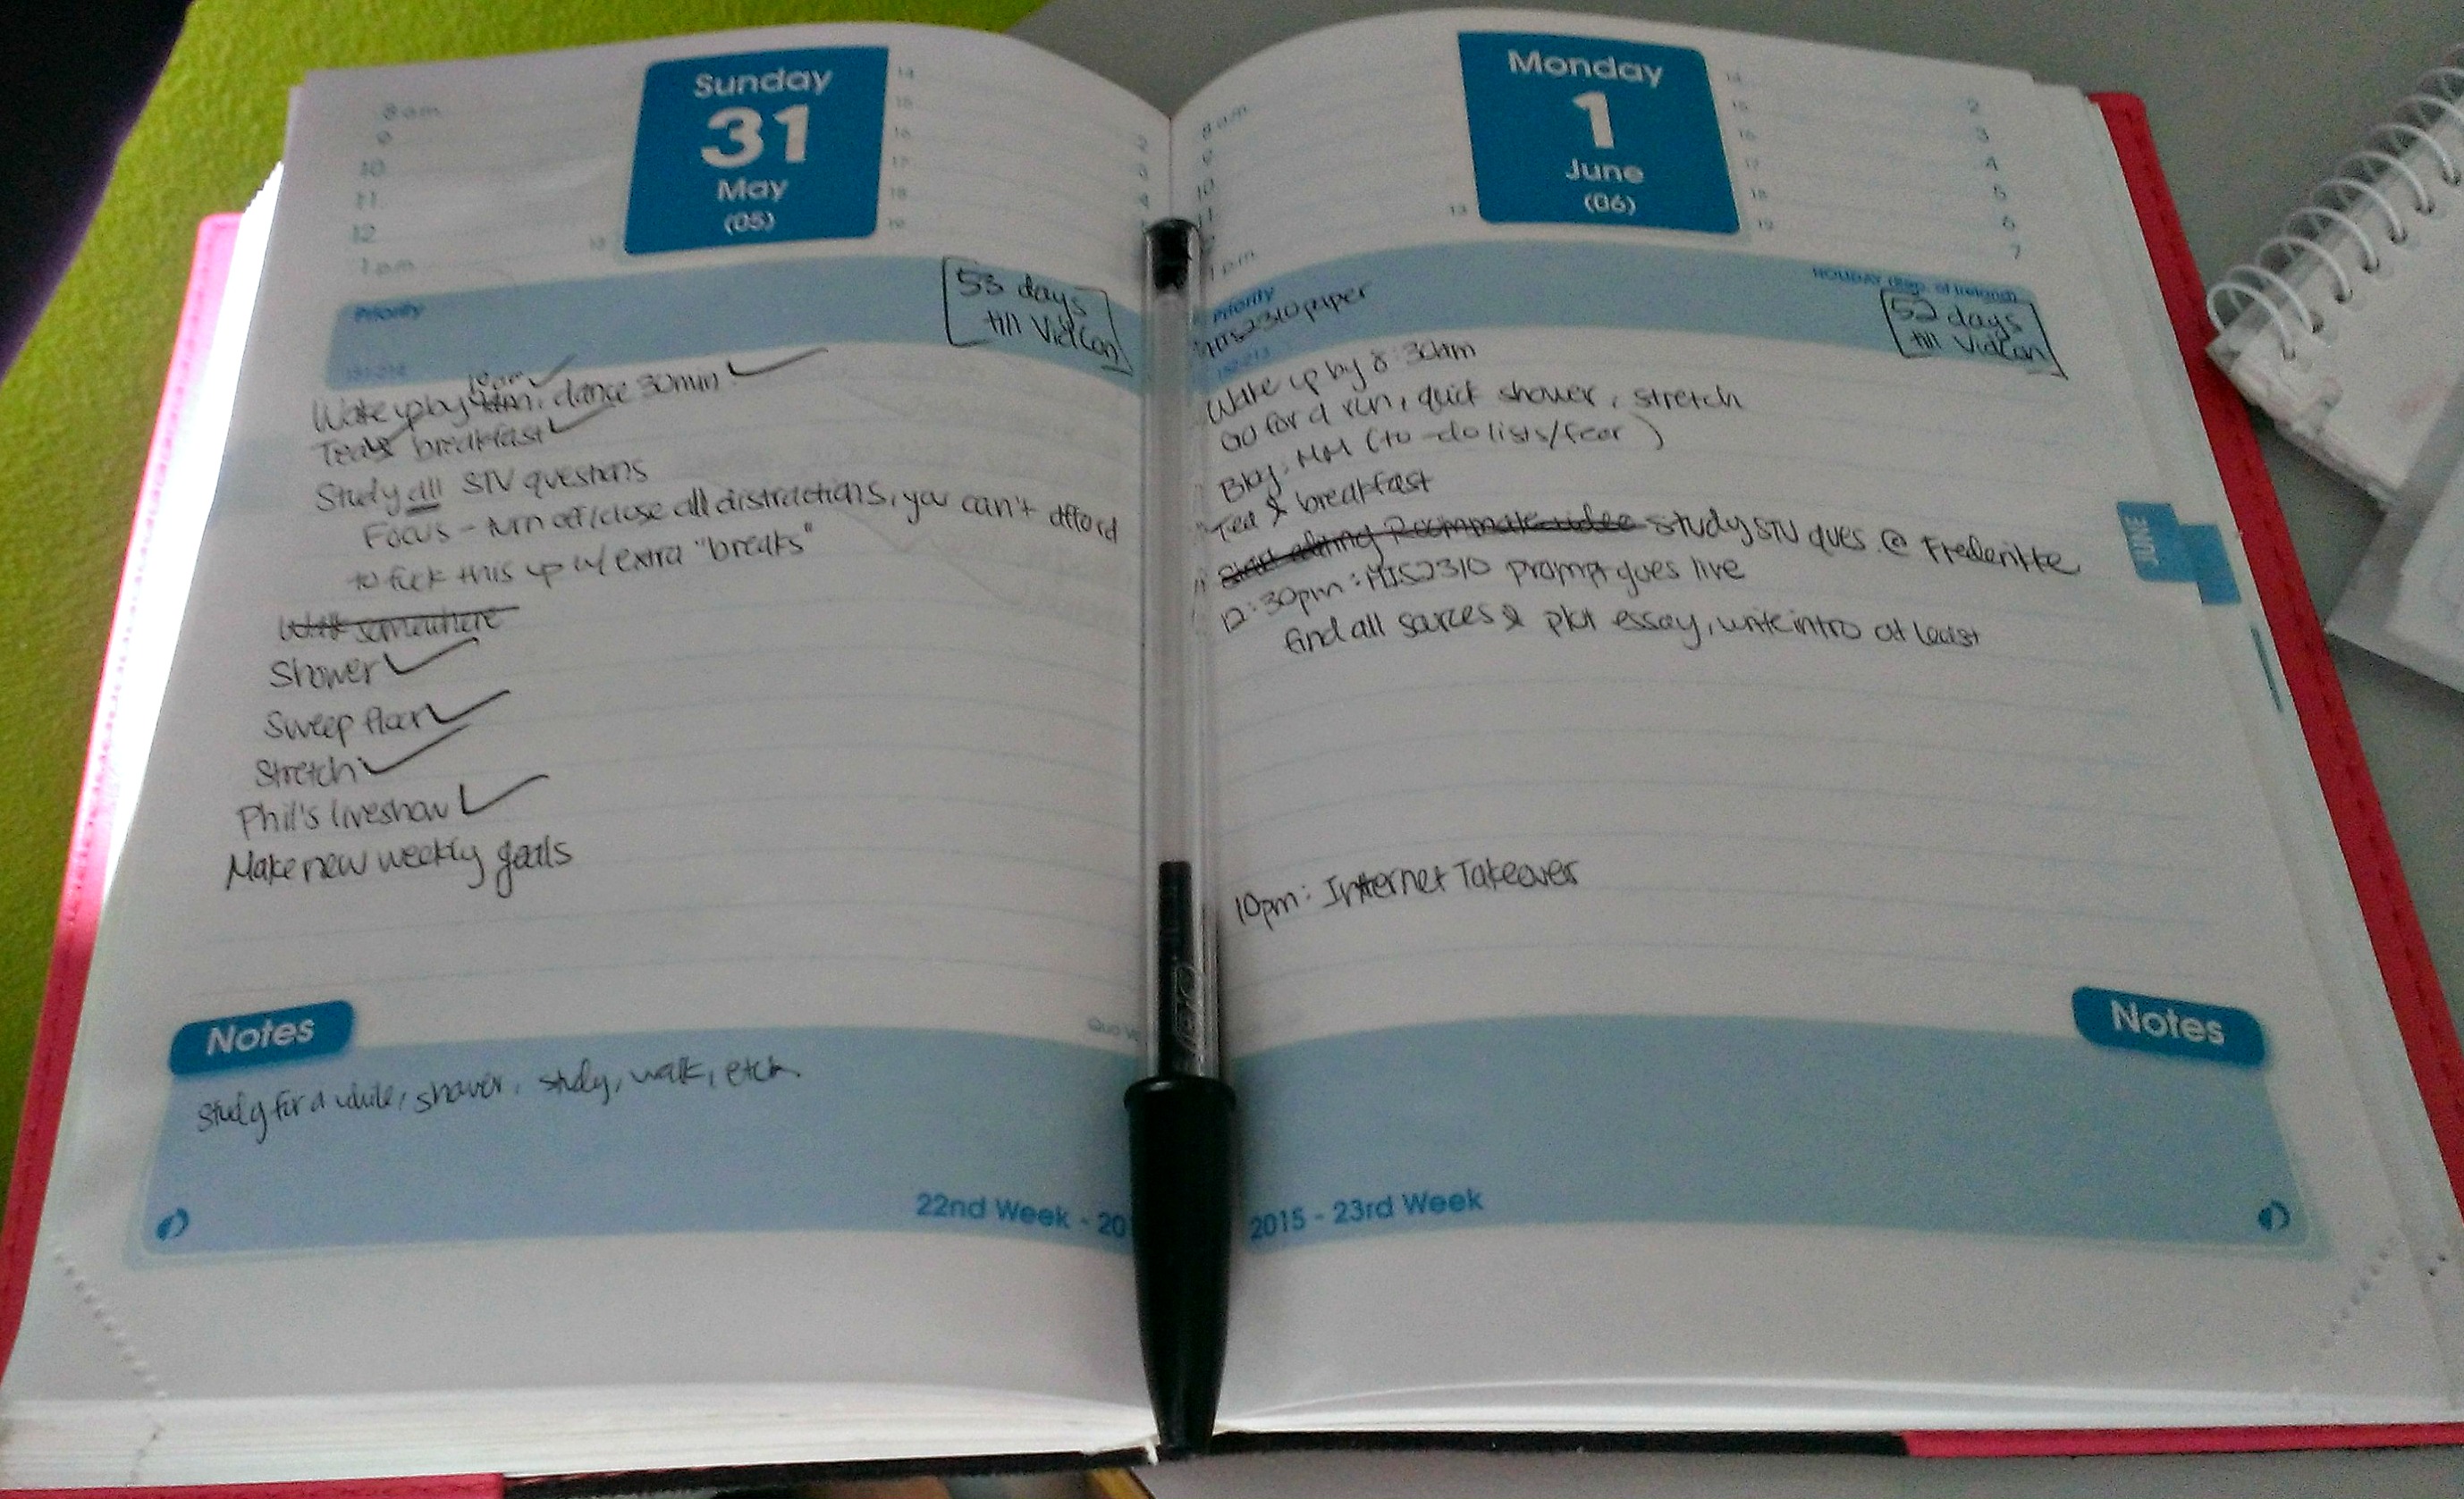 Sunday
31
May
(05)
8 am
9
10
11
12
1 pm
13
14
15
16
17
18
19
2
3
4
Priority
53 days
till VidCon
151-214
10am
Wake up by, dance 30min
Tea & breakfast
Study all STV questions
Focus - turn off/close all distractions, you can't afford
to fuck this up w/ extra "breaks"
Walk somewhere
Shower
Sweep floor
Stretch
Phil's liveshow
Make new weekly goals
Notes
Quo V
Study for a while, shower, study, walk, etc.
22nd Week - 20
Monday
1
June
(06)
8 am
9
10
11
1 pm
13
14
15
16
17
18
19
2
3
4
5
6
7
Priority
HOLIDAY (Rep. of Ireland)
HIS2310 paper
52 days
till VidCon
152-213
Wake up by 8:30am
Go for a run, quick shower, stretch
Blog: MM (to-do lists/fear)
Tea & breakfast
Start editing Roommate video Study STV ques. @ Frederikke
12:30pm: HIS2310 prompt goes live
find all sources & plot essay, write intro at least
10pm: Internet Takeover
JUNE
Notes
2015 - 23rd Week